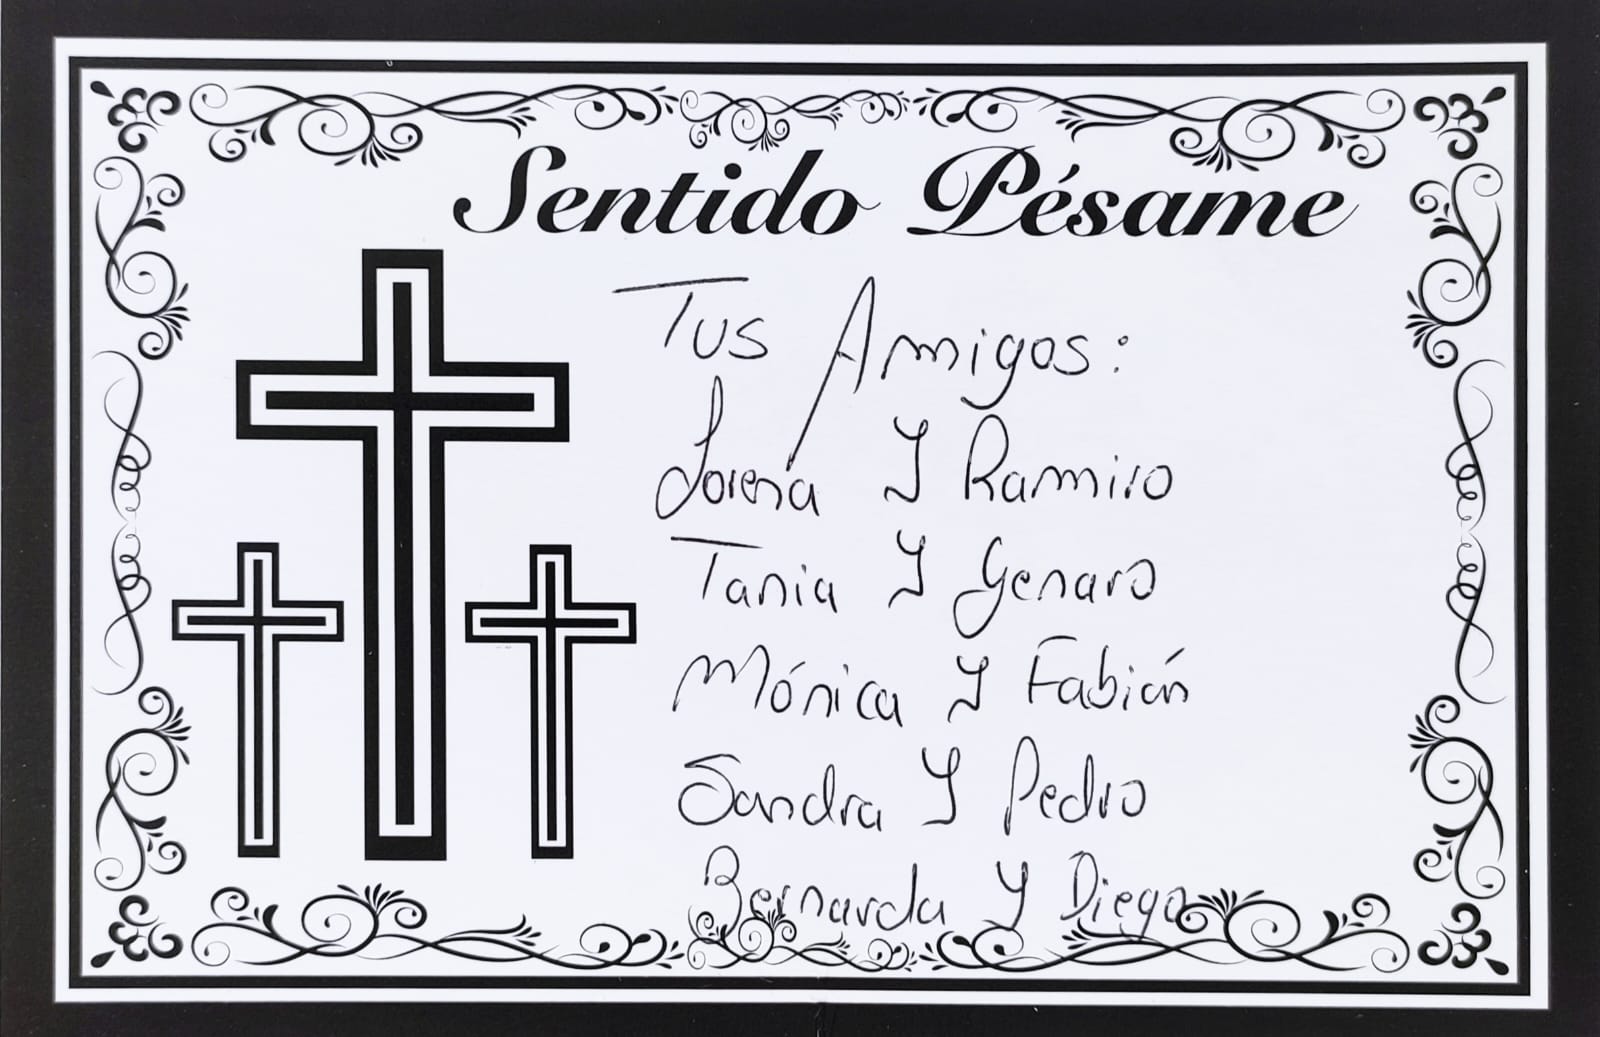 Sentido Pésame
Tus Amigos:
Lorena Y Ramiro
Tania Y Genaro
Mónica Y Fabián
Sandra Y Pedro
Bernarda Y Diego